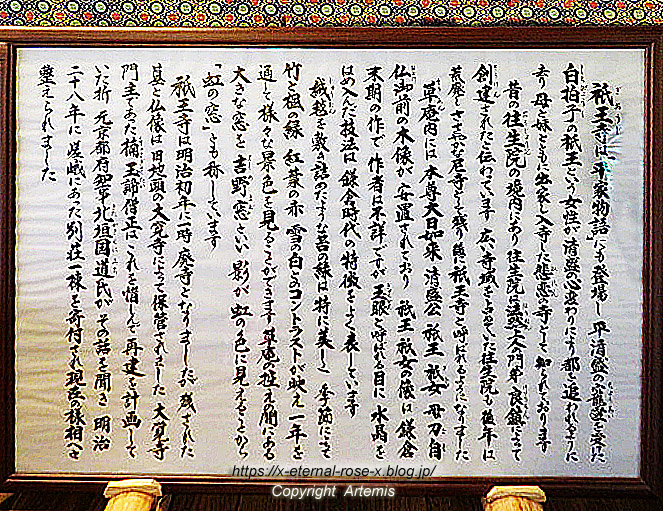 祇王寺は『平家物語』にも登場し 平清盛の寵愛を受けた
白拍子の祇王という女性が 清盛の心変わりにより都を追われるように
去り 母と妹とともに出家し入寺した悲恋の寺として 知られております
昔の往生院の境内にあり 往生院は法然上人門弟 良鎮によって
創建されたと伝わています 広い寺域を占めていた往生院も 後年は
荒廃し ささやかな尼寺として残り 後に祇王寺と呼ばれるようになりました
草庵内には 本尊大日如来 清盛公 祇王 祇女 母刀自
仏御前の木像が 安置されており 祇王 祇女の像は鎌倉
末期の作で 作者は不詳ですが 玉眼と呼ばれる目に 水晶を
はめ入んだ技法は 鎌倉時代の特徴をよく表しています
絨毯を敷き詰めたような苔の緑は 特に美しく 季節によって
竹と楓の緑 紅葉の赤 雪の白とのコントラストが映え 一年を
通して様々な景色を見ることができます 草庵の控え間にある
大きな窓を 吉野窓といい 影が虹の色に見えることから
「虹の窓」とも称しています
祇王寺は明治初年に一時 廃寺となりましたが 残された
墓と仏像は 旧地頭の大覚寺によって保管されました 大覚寺
門主であた 楠玉諦僧正は これを惜しんで 再建を計画して
いた折 元京都府知事 北垣国道氏が その話を聞き 明治
二十八年に 嵯峨にあった別荘一棟を寄付され 現在の様相へと
整えられました
https://x-eternal-rose-x.blog.jp/
Copyright Artemis